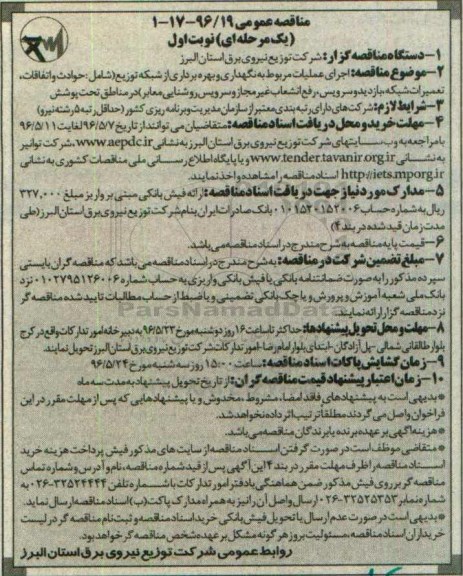 مناقصه عمومی ۹۶/۱۹-۱۷-۱
(یک مرحله ای) نوبت اول
۱-دستگاه مناقصه گزار: شرکت توزیع نیروی برق استان البرز
۲-موضوع مناقصه: اجرای عملیات مربوط به نگهداری و بهره برداری از شبکه توزیع (شامل: حوادث و اتفاقات،
تعمیرات شبکه، بازدید و سرویس، رفع انشعاب غیر مجاز و سرویس روشنایی معابر) در مناطق تحت پوشش
۳-شرایط لازم: شرکت های دارای رتبه بندی معتبر از سازمان مدیریت و برنامه ریزی کشور (حداقل رتبه ۵ رشته نیرو)
۴-مهلت خرید و محل دریافت اسناد مناقصه: متقاضیان می توانند از تاریخ ۹۶/۵/۷ لغایت ۹۶/۵/۱۱
با مراجعه به وب سایتهای شرکت توزیع نیروی برق استان البرز به نشانی www.aepdc.ir، شرکت توانیر
به نشانی www.tender.tavanir.org.ir و یا پایگاه اطلاع رسانی ملی مناقصات کشوری به نشانی
http://iets.mporg.ir اسناد مناقصه را مشاهده و اخذ نمایند.
۵-مدارک مورد نیاز جهت دریافت اسناد مناقصه: ارائه فیش بانکی مبنی بر واریز مبلغ ۳۲۷,۰۰۰
ریال به شماره حساب ۰۱۰۱۵۲۰۱۵۲۰۰۶ بانک صادرات ایران بنام شرکت توزیع نیروی برق استان البرز (طی
مدت زمان قید شده در بند ۴)
۶-قیمت پایه مناقصه به شرح مندرج در اسناد مناقصه می باشد.
۷-مبلغ تضمین شرکت در مناقصه: به شرح مندرج در اسناد مناقصه می باشد که مناقصه گران بایستی
سپرده مذکور را به صورت ضمانتنامه بانکی یا فیش بانکی واریزی به حساب شماره ۰۱۰۲۷۹۵۱۲۶۰۰۶ نزد
بانک ملی شعبه آموزش و پرورش و یا چک بانکی تضمینی و یا ضبط از حساب مطالبات تایید شده مناقصه گر
نزد مناقصه گزار ارائه نمایند.
۸-مهلت و محل تحویل پیشنهادها: حداکثر تا ساعت ۱۶ روز دوشنبه مورخ ۹۶/۵/۲۳ به دبیرخانه امور تدارکات واقع در کرج
بلوار طالقانی شمالی -پل آزادگان -ابتدای بلوار امام رضا -امور تدارکات شرکت توزیع نیروی برق استان البرز تحویل نمایند.
۹-زمان گشایش پاکات اسناد مناقصه: ساعت ۱۵:۰۰ روز سه شنبه مورخ ۹۶/۵/۲۴
۱۰-زمان اعتبار پیشنهاد قیمت مناقصه گران: از تاریخ تحویل پیشنهاد به مدت سه ماه
*بدیهی است به پیشنهادهای فاقد امضاء، مشروط، مخدوش و یا پیشنهادهایی که پس از مهلت مقرر در این
فراخوان واصل می گردند مطلقا ترتیب اثر داده نخواهد شد.
*هزینه آگهی بر عهده برنده یا برندگان مناقصه می باشد.
*متقاضی موظف است در صورت گرفتن اسناد مناقصه از سایت های مذکور فیش پرداخت هزینه خرید
اسناد مناقصه را ظرف مهلت مقرر در بند ۴ این آگهی پس از قید شماره مناقصه، نام و آدرس و شماره تماس
مناقصه گر بر روی فیش مذکور ضمن هماهنگی با دفتر امور تدارکات با شماره تلفن ۳۲۵۲۴۴۴۴-۰۲۶ به
شماره نمابر ۳۲۵۲۵۳۵۳-۰۲۶ ارسال و اصل آن را نیز به همراه مدارک پاکت (ب) اسناد مناقصه ارسال نماید.
*بدیهی است در صورت عدم ارسال یا تحویل فیش بانکی خرید اسناد مناقصه و ثبت نام مناقصه گر در لیست
خریداران اسناد مناقصه، مسئولیت بروز هر گونه مشکل بر عهده شخص مناقصه گر خواهد بود.
روابط عمومی شرکت توزیع نیروی برق استان البرز
ParsNamadData